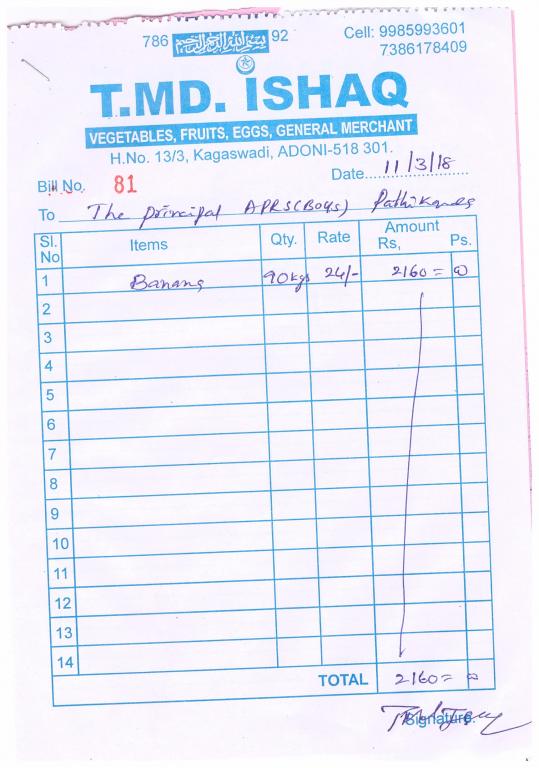 786 بسم الله الرحمن الرحيم 92
Cell: 9985993601
7386178409
T.MD. ISHAQ
VEGETABLES, FRUITS, EGGS, GENERAL MERCHANT
H.No. 13/3, Kagaswadi, ADONI-518 301.
Bill No. 81 Date 11/3/18
To The principal APRS(BOYS)
Sl. No Items Qty. Rate Amount Rs, Ps.
1 Banana 90kgs 24/- 2160=00
2
3
4
5
6
7
8
9
10
11
12
13
14
TOTAL 2160=00
Signature.